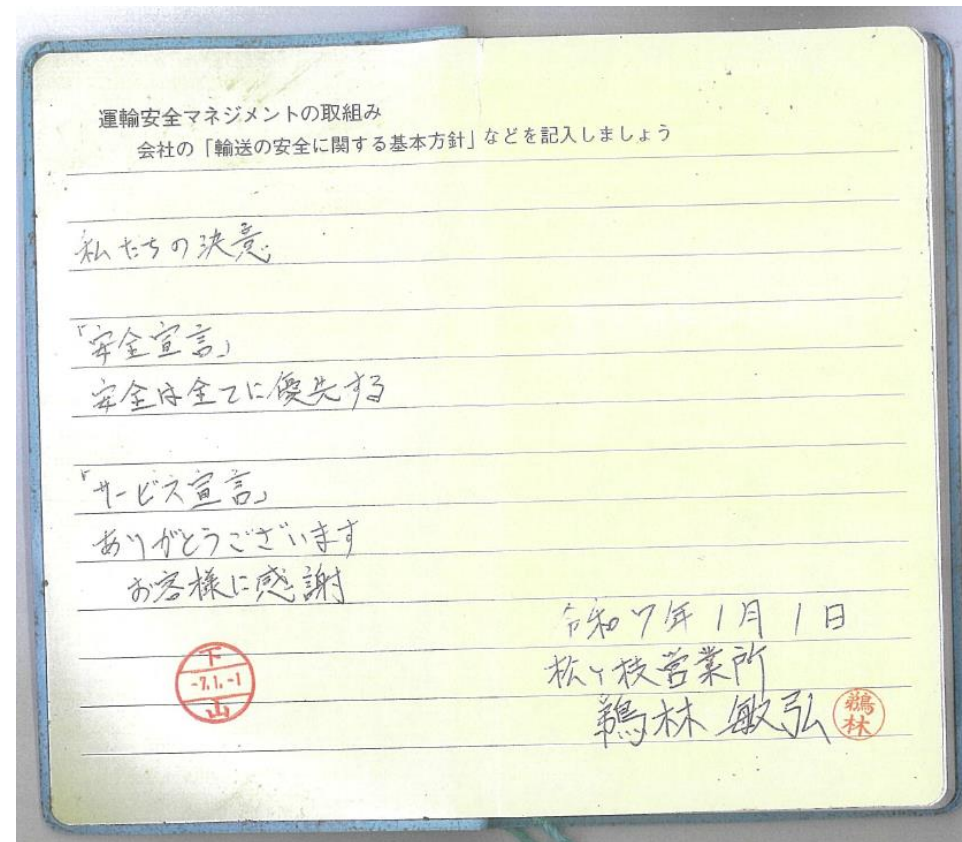 運輸安全マネジメントの取組み
会社の「輸送の安全に関する基本方針」などを記入しましょう
私たちの決意
「安全宣言」
安全は全てに優先する
「サービス宣言」
ありがとうございます
お客様に感謝
令和7年1月1日
松ヶ枝営業所
鵜林 敏弘
鵜林
下
-7.1.-1
山